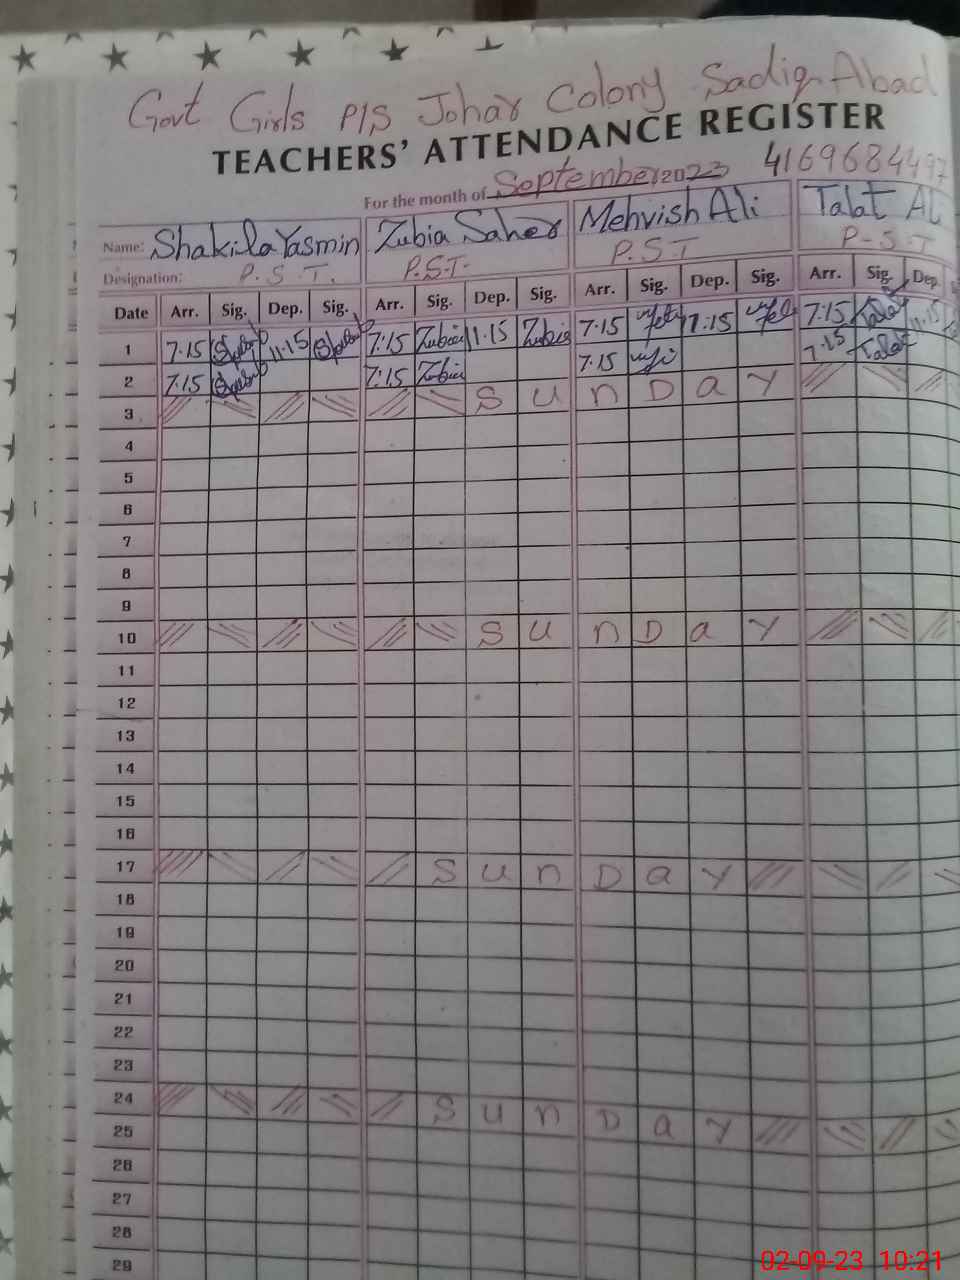 Govt Girls P/S Johar Colony Sadiq Abad
TEACHERS' ATTENDANCE REGISTER
For the month of September 2023 4169684497
Name: Shakila Yasmin Zubia Saher Mehvish Ali Talat Al
Designation: P.S.T. P.S.T. P.S.T P-S.T
Date Arr. Sig. Dep. Sig. Arr. Sig. Dep. Sig. Arr. Sig. Dep. Sig. Arr. Sig. Dep.
1 7.15 11.15 7.15 Zubia 11.15 Zubia 7.15 11.15 7.15 Talat 11.15
2 7.15 7.15 Zubia 7.15 7.15 Talat
3 SUnDay
4
5
6
7
8
9
10 SUnDay
11
12
13
14
15
16
17 SUnDay
18
19
20
21
22
23
24 SUnDay
25
26
27
28
29
02-09-23 10:21